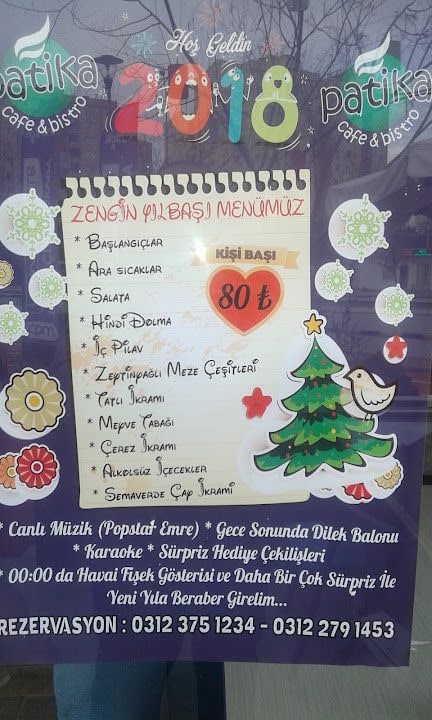 Hoş Geldin
patika
cafe & bistro
2018
patika
cafe & bistro
ZENGİN YILBAŞI MENÜMÜZ
* BAŞLANGIÇLAR
* ARA SICAKLAR
* SALATA
* HİNDİ DOLMA
* İÇ PİLAV
* ZEYTİNYAĞLI MEZE ÇEŞİTLERİ
* TATLI İKRAMI
* MEYVE TABAĞI
* ÇEREZ İKRAMI
* ALKOLSÜZ İÇECEKLER
* SEMAVERDE ÇAY İKRAMI
KİŞİ BAŞI
80 ₺
* Canlı Müzik (Popstar Emre) * Gece Sonunda Dilek Balonu
* Karaoke * Sürpriz Hediye Çekilişleri
* 00:00 da Havai Fişek Gösterisi ve Daha Bir Çok Sürpriz İle
Yeni Yıla Beraber Girelim...
REZERVASYON : 0312 375 1234 - 0312 279 1453